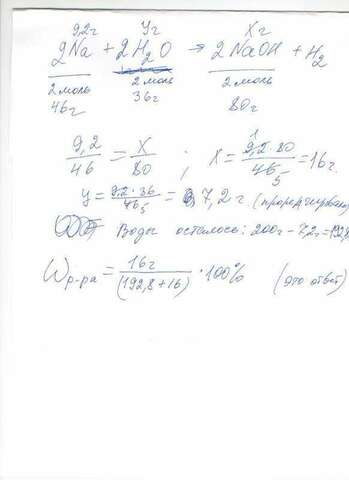 9,2г yг xг
2Na + 2H₂O → 2NaOH + H₂
2 моль 2 моль 2 моль
46г 36г 80г
9,2/46 = x/80 ; x = 9,2·80/46 = 16г.
y = 9,2·36/46 = 7,2г. (прореагировало)
Воды осталось: 200г – 7,2г = 192,8
Wр-ра = 16г/(192,8+16) · 100% (это ответ)